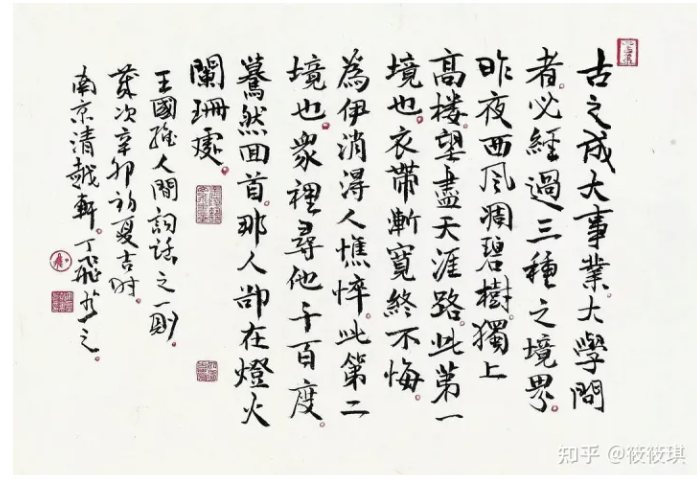 古之成大事業。大學問
者。必經過三種之境界。
昨夜西风凋碧樹。獨上
高楼。望盡天涯路。此第一
境也。衣帶漸寬終不悔。
為伊消得人憔悴。此第二
境也。衆裡尋他千百度。
驀然回首。那人卻在燈火
闌珊處。
王國維人間詞話之一則。
歲次辛卯初夏吉时。
南京清越軒。丁飛书之。
知乎 @筱筱琪